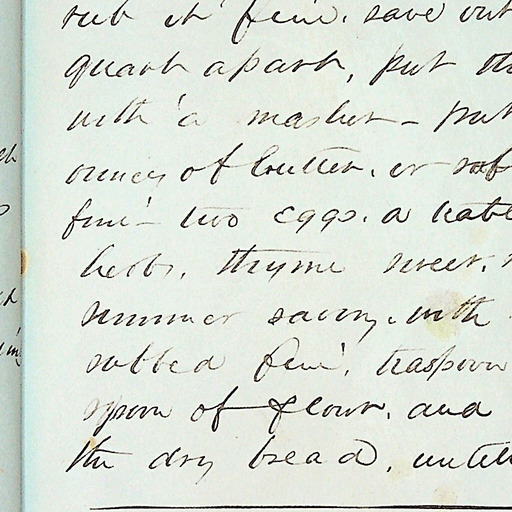 rub it fine. save out
quart apart, put the
with a masher - put
ounces of butter. or
fine - two eggs. a table
herbs. thyme sweet.
summer savory. with
rubbed fine. teaspoon
spoon of flour. and
the dry bread. untill